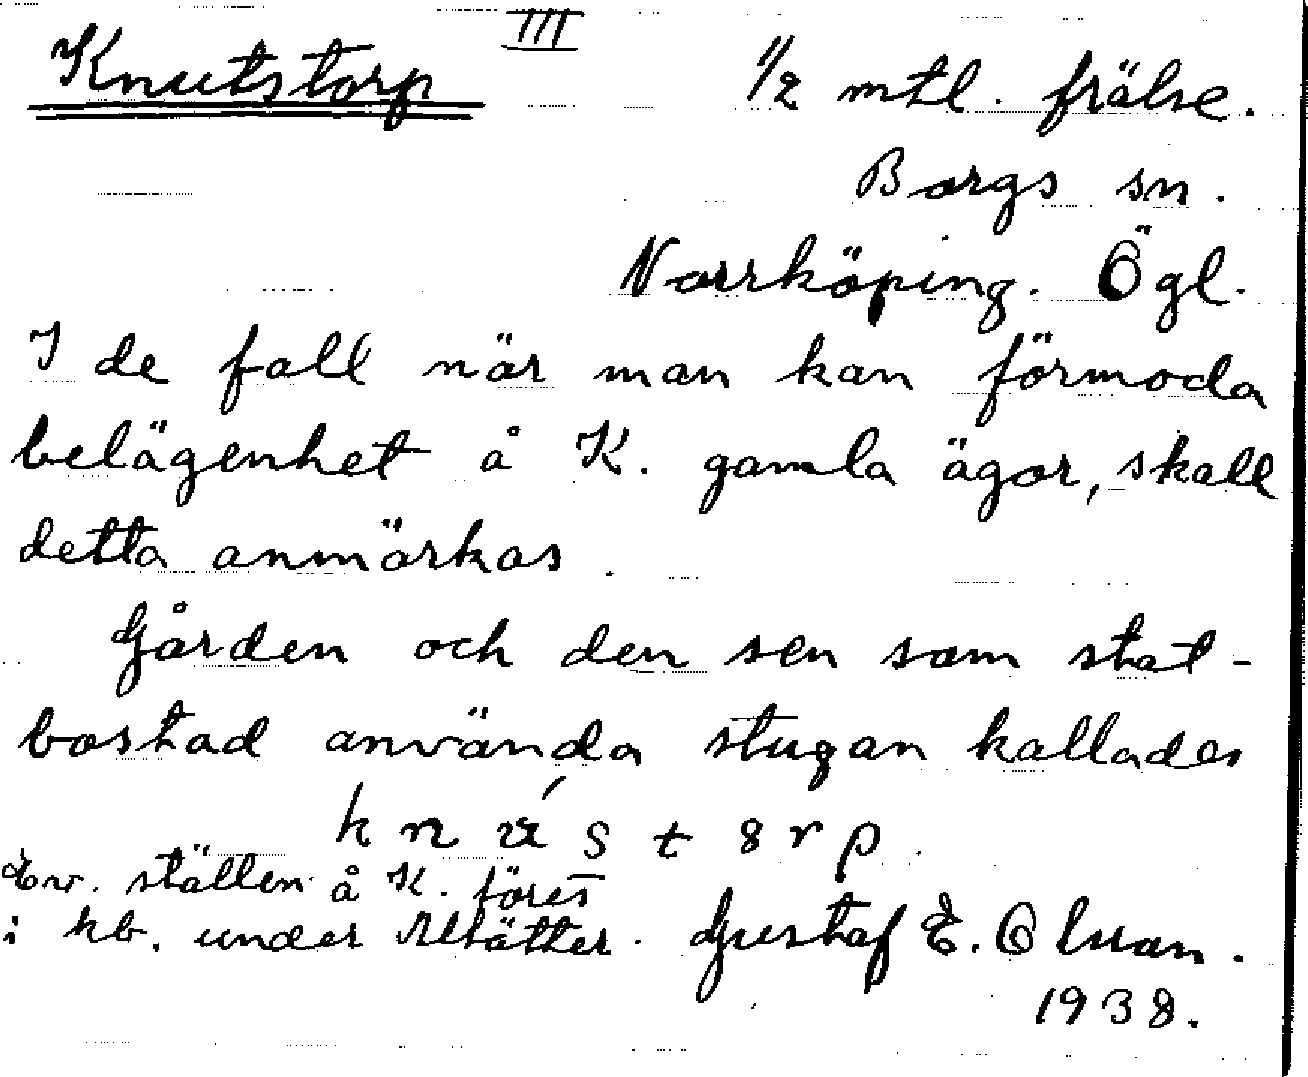 III
Knutstorp 1/2 mtl. frälse.
Borgs sn.
Norrköping. Ögl.
I de fall när man kan förmoda
belägenhet å K. gamla ägor, skall
detta anmärkas.
Gården och den sen som stat-
bostad använda stugan kallades
Ev. ställen å K. föres
i kb. under Mätter. Gustaf E. Olson.
1938.